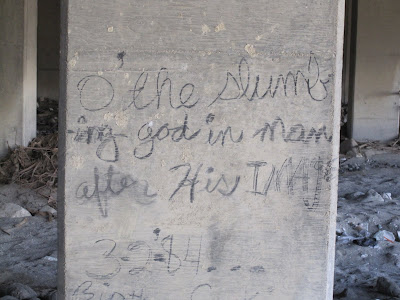 O' the slumb
ing god in man
after His IMAGE
3-2-84...